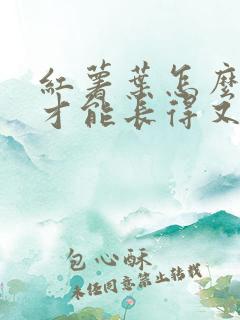 紅薯葉怎麼
才能長得又
包心酥
未經同意禁止轉載